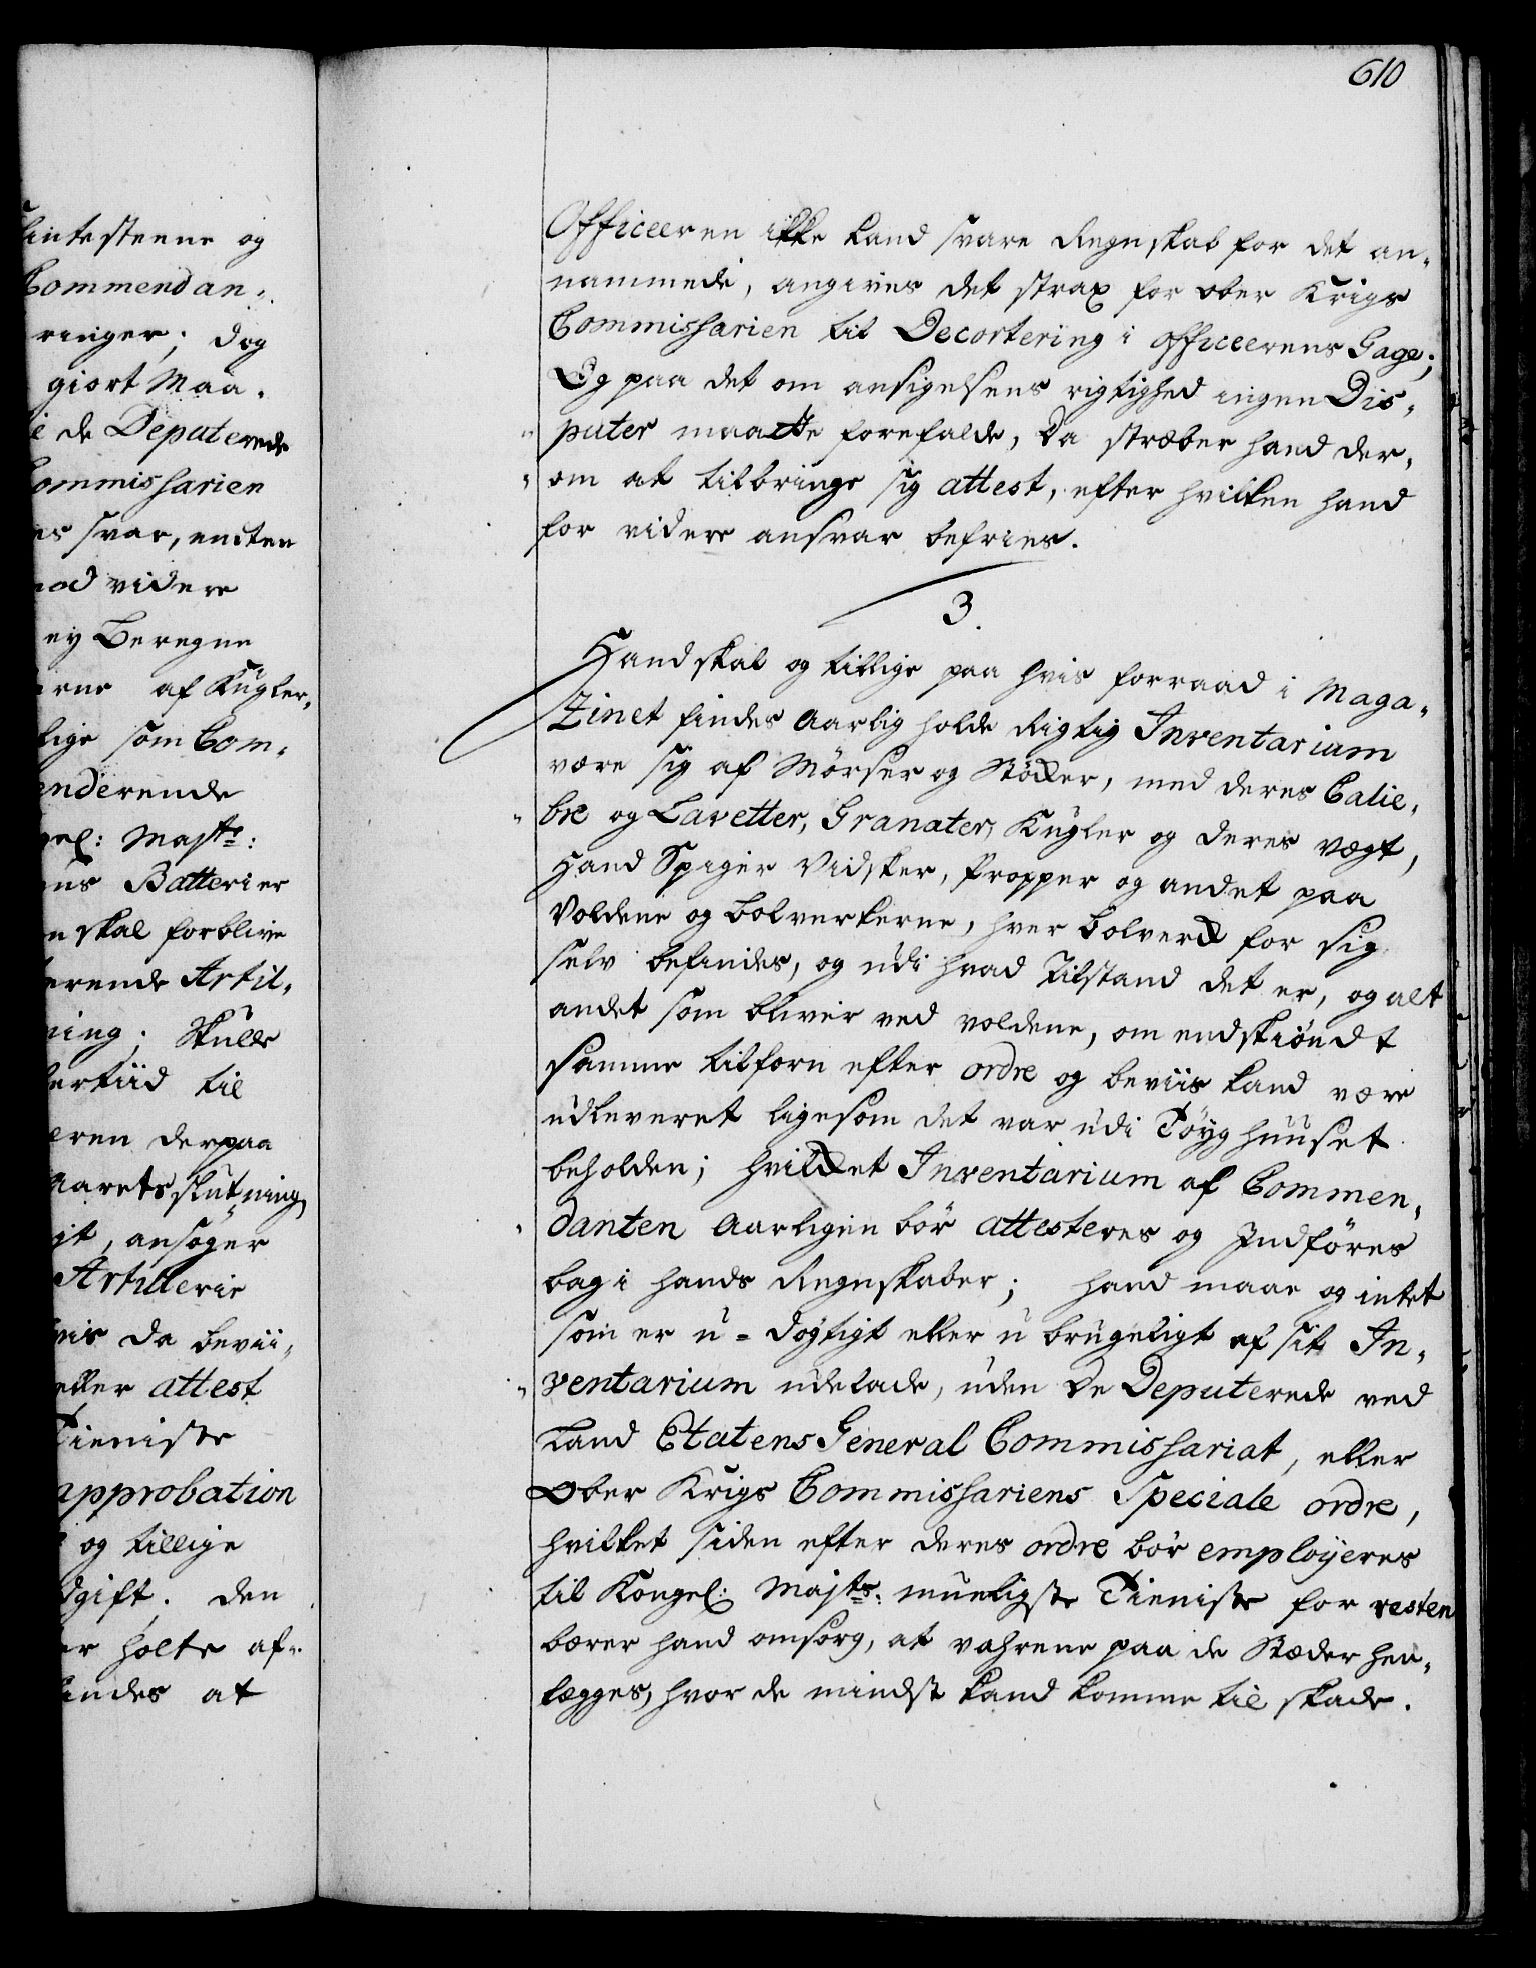 610
lintesteene og
Commendan„
ringer; dog
giort Maa„
de Deputerede
ommissarien
es svar, endten
mod videre
ey Beregne
erne af Kugler,
lige som Com„
enderende
gel: Mayts:
ns Batterier
n skal forblive
erende Artil„
ning; Skulle
ertiid til
eren derpaa
Aarets slutning
gt, ansøger
Artillerie
vis da bevii„
eller attest
Tieniste
approbation
og tillige
dgift. den
er holte af„
findes at
Officeeren ikke kand svare Regnskab for det an„
nammede, angives det strax for ober Krigs
Commissarien til Decortering i officeerens Gage;
Og paa det om ansigelsens rigtighed ingen Dis„
„puter maatte forefalde, da stræber hand der„
„om at tilbringe sig attest, efter hvilken hand
for videre ansvar befries.
3.
Hand skal og tillige paa hvis forraad i Maga„
Zinet findes aarlig holde Rigtig Inventarium
være sig af Mörser og Stöcker, med deres Calie„
„bre og Lavetter, Granater, Kugler og deres vægt,
Hand Spiger Vidsker, Propper og andet paa
Voldene og bolverkerne, hver bolverck for sig
selv befindes, og udi hvad Tilstand det er, og alt
andet som bliver ved voldene, om endskiöndt
samme tilforn efter ordre og beviis kand være
udleveret ligesom det var udi Töyghuuset
beholden; hvilcket Inventarium af Commen„
„danten Aarligen bör attesteres og Indföres
bag i hands Regnskaber; hand maae og intet
som er u-dögtigt eller ubrugeligt af sit In„
„ventarium udelade, uden de Deputerede ved
Land Etatens General Commissariat, eller
Ober Krigs Commissariens Speciale ordre,
hvilket siden efter deres ordre bör employeres
til Kongel: Mayts: mueligste Tieniste for resten
bærer hand omsorg, at vahrene paa de Stæder hen„
lægges, hvor de mindst kand komme til skade.